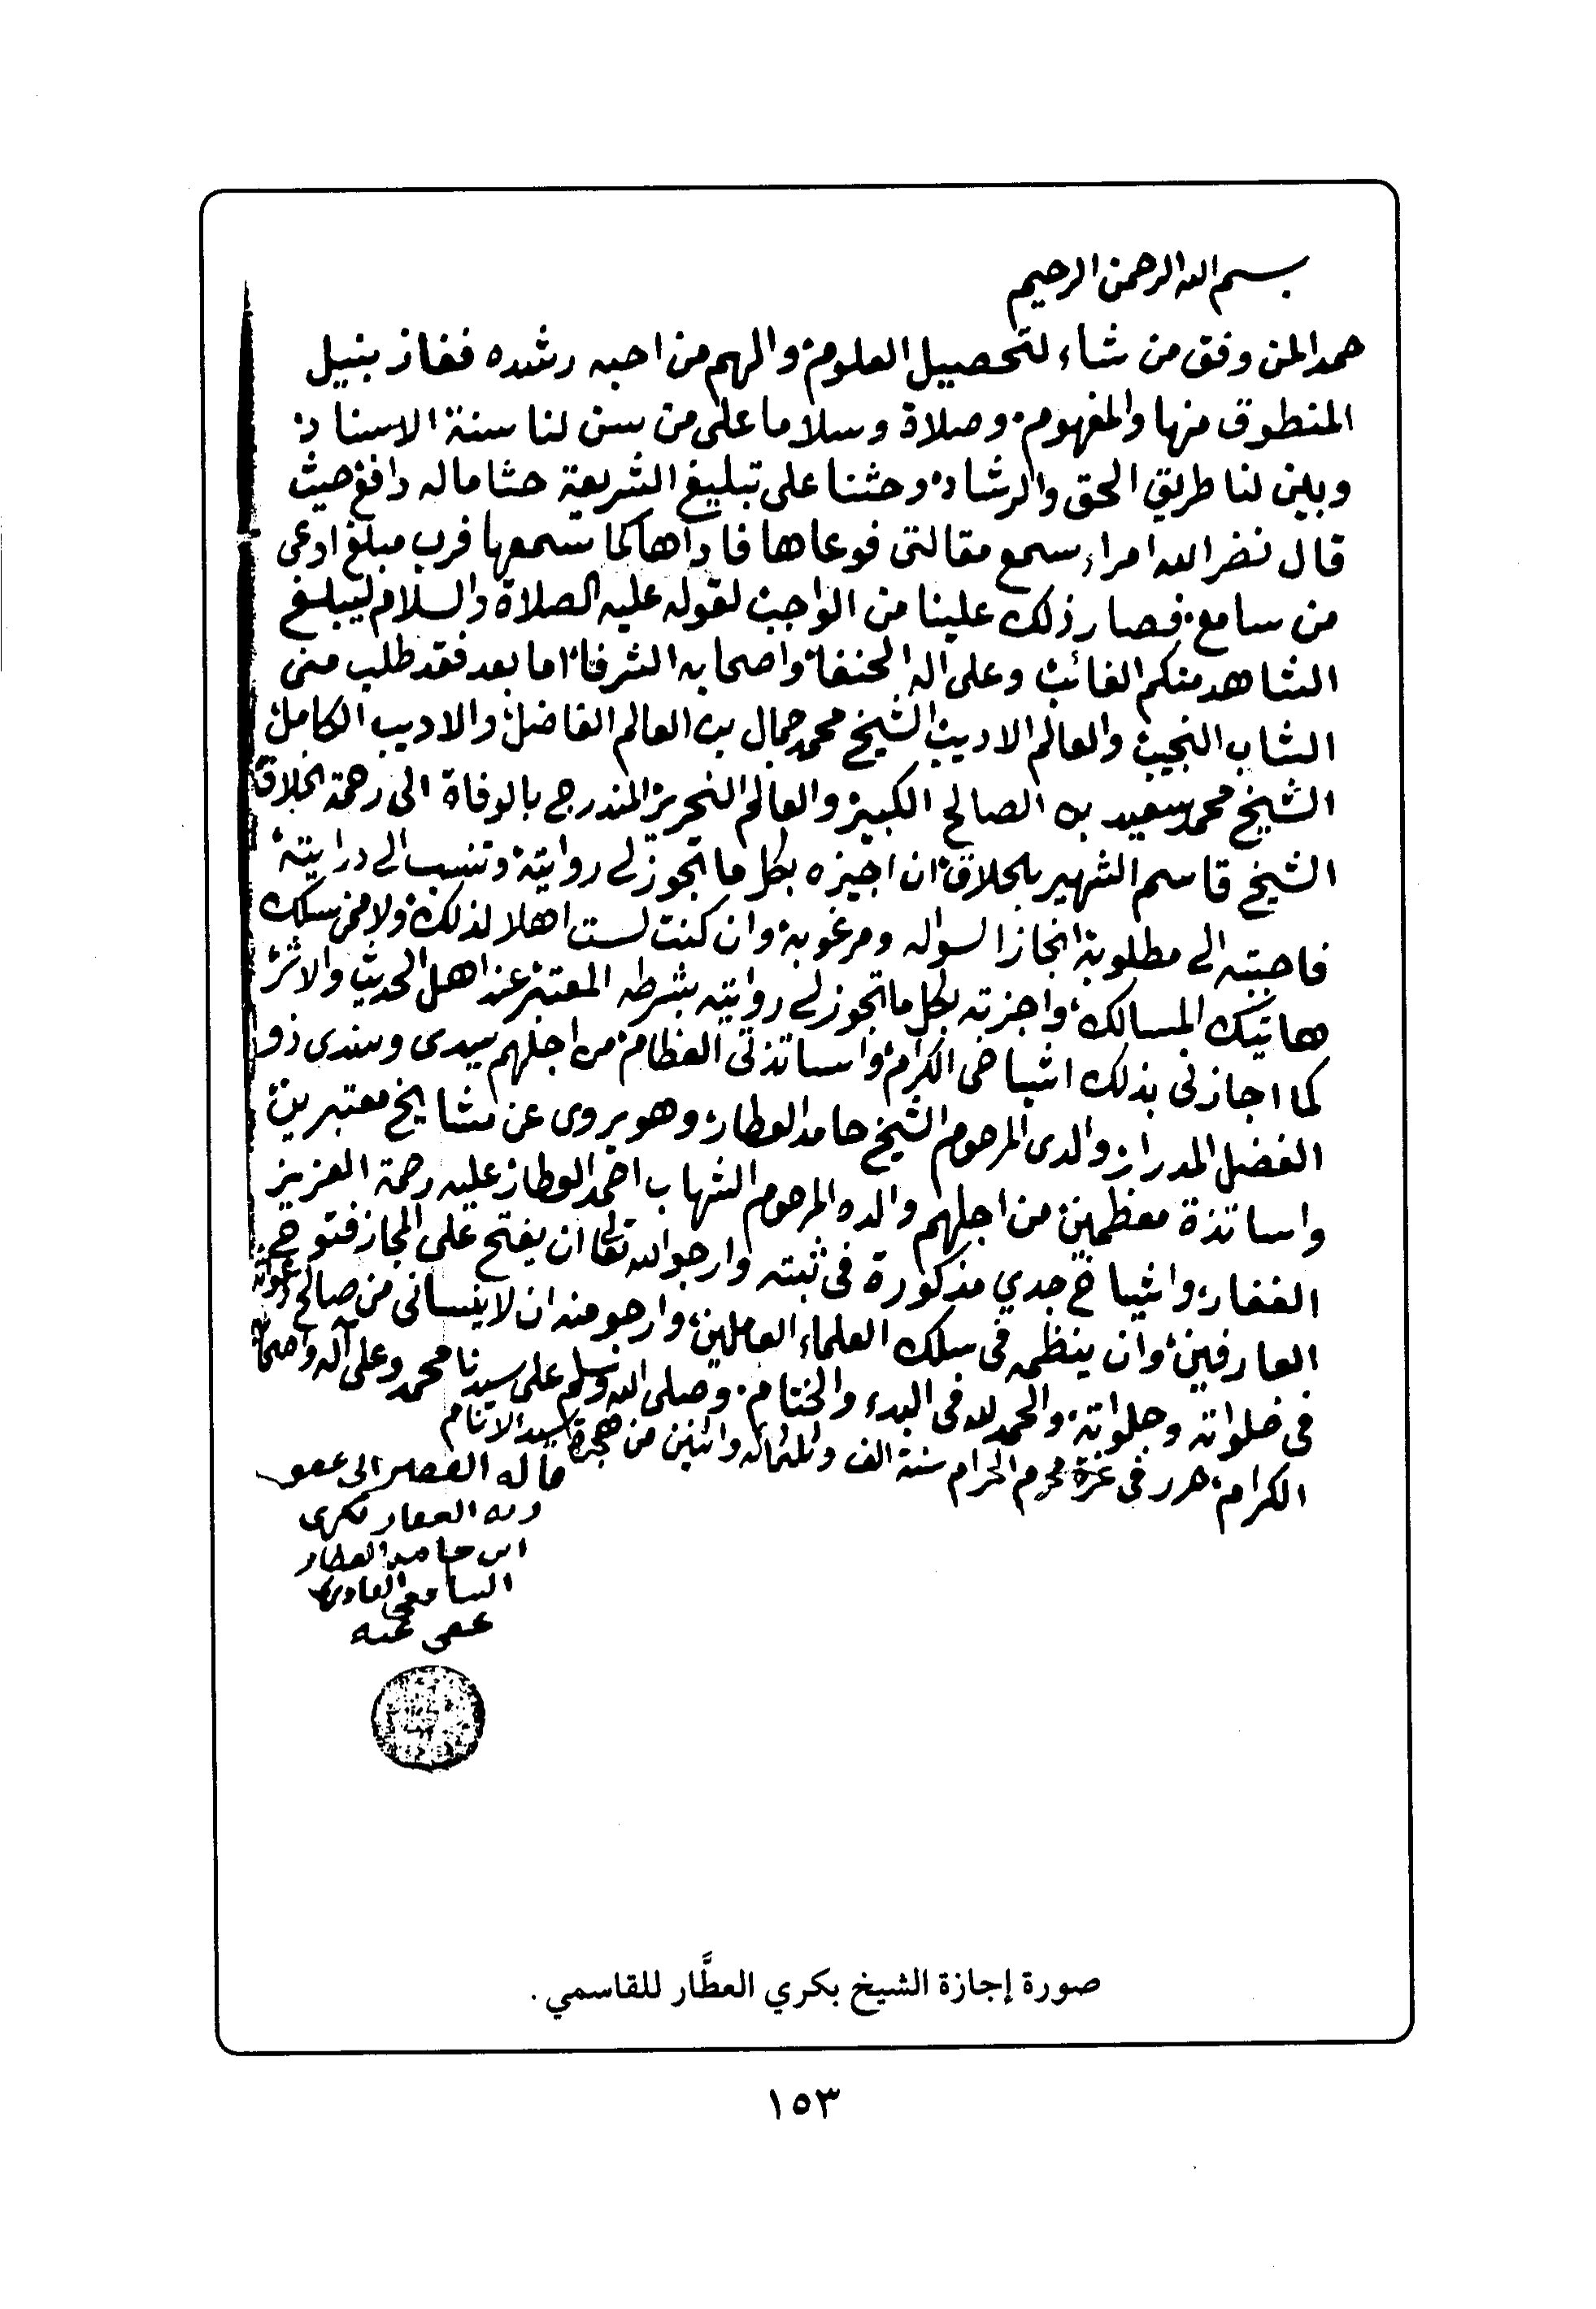 بسم الله الرحمن الرحيم
حمدا لمن وفق من شاء لتحصيل العلوم والهم من احبه رشده ففاز بنيل
المنطوق منها والمفهوم وصلاة وسلاما على من سن لنا سنة الاسناد
وبين لنا طريق الحق والرشاد وحثنا على تبليغ الشريعة حثا ماله دافع حيث
قال نضر الله امراء سمع مقالتى فوعاها فاداها كما سمعها فرب مبلغ اوعى
من سامع فصار ذلك علينا من الواجب لقوله عليه الصلاة والسلام ليبلغ
الشاهد منكم الغائب وعلى اله الحنفا واصحابه الشرفا اما بعد فقد طلب منى
الشاب النجيب والعالم الاديب الشيخ محمد جمال بن العالم الفاضل والاديب الكامل
الشيخ محمد سعيد بن الصالح الكبير والعالم النحرير المندرج بالوفاة الى رحمة الخلاق
الشيخ قاسم الشهير بالحلاق ان اجيزه بكل ما تجوز لي روايته وتنسب الى درايته
فاجبته الى مطلوبه انجازا لسواله ومرغوبه وان كنت لست اهلا لذلك ولا ممن سلك
هاتيك المسالك واجزته بكل ما تجوز لي روايته بشرطه المعتبر عند اهل الحديث والاثر
كما اجازنى بذلك اشياخى الكرام واساتذتى العظام من اجلهم سيدى وسندى ذو
الفضل المدرار والدى المرحوم الشيخ حامد العطار وهو يروى عن مشايخ معتبرين
واساتذة معظمين من اجلهم والده المرحوم الشهاب احمد العطار عليه رحمة العزيز
الغفار واشياخ جدي مذكورة فى ثبته وارجو الله تعالى ان يفتح على المجاز فتوح
العارفين وان ينظمه فى سلك العلماء العاملين وارجو منه ان لا ينسانى من صالح دعواته
فى خلواته وجلواته والحمد لله فى البدء والختام وصلى الله وسلم على سيدنا محمد وعلى آله واصحابه
الكرام حرر فى غرة محرم الحرام سنة الف وثلثمائه واثنين من هجرة سيد الانام
قاله الفقير الى عفو
ربه الغفار بكرى
ابن حامد العطار
الشافعى القادرى
عفى عنه
صورة إجازة الشيخ بكري العطَّار للقاسمي .
١٥٣